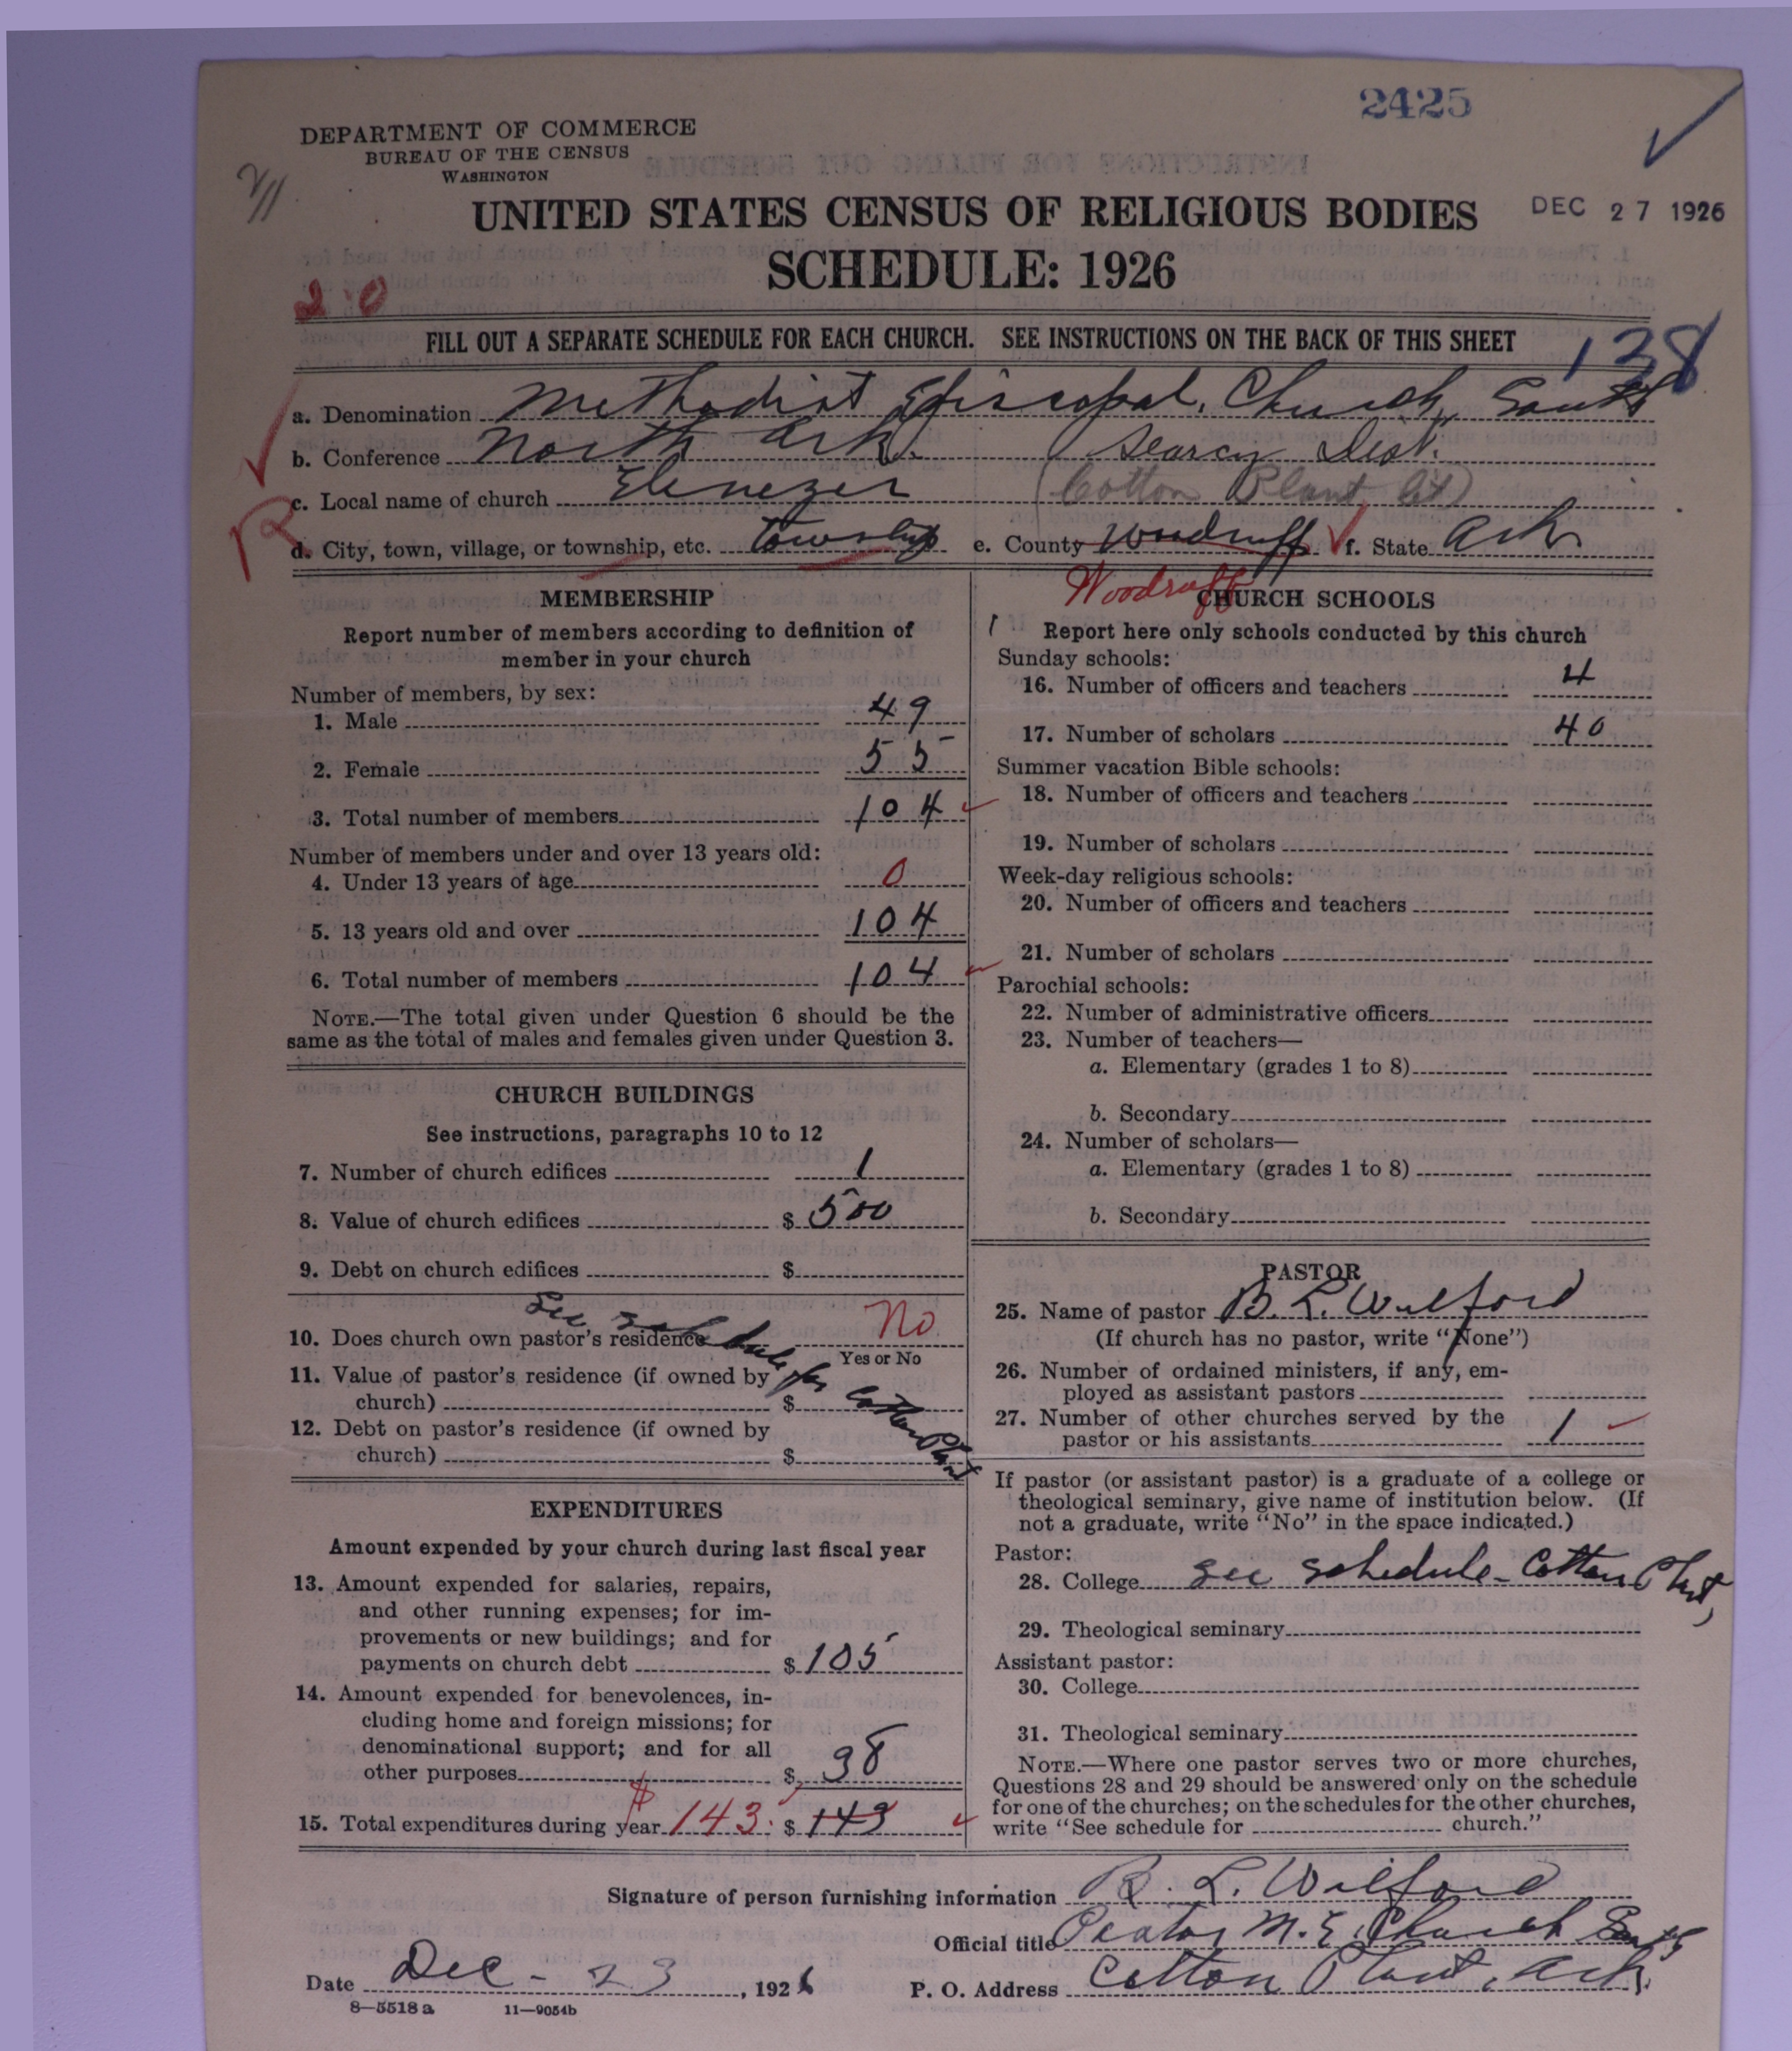 2425
DEPARTMENT OF COMMERCE
BUREAU OF THE CENSUS
WASHINGTON
UNITED STATES CENSUS OF RELIGIOUS BODIES
DEC 27 1926
SCHEDULE: 1926
FILL OUT A SEPARATE SCHEDULE FOR EACH CHURCH. SEE INSTRUCTIONS ON THE BACK OF THIS SHEET
138
a. Denomination Methodist Episcopal, Church, South
b. Conference North Ark. Searcy Dist.
c. Local name of church Ebenezer (Cotton Plant Ct)
d. City, town, village, or township, etc. township e. County Woodruff f. State Ark
Woodruff
MEMBERSHIP
Report number of members according to definition of
member in your church
Number of members, by sex:
1. Male 49
2. Female 55
3. Total number of members 104
Number of members under and over 13 years old:
4. Under 13 years of age 0
5. 13 years old and over 104
6. Total number of members 104
NOTE.—The total given under Question 6 should be the
same as the total of males and females given under Question 3.
CHURCH BUILDINGS
See instructions, paragraphs 10 to 12
7. Number of church edifices 1
8. Value of church edifices $ 500
9. Debt on church edifices $
See schedule for Cotton Plant
10. Does church own pastor's residence No
Yes or No
11. Value of pastor's residence (if owned by
church) $
12. Debt on pastor's residence (if owned by
church) $
EXPENDITURES
Amount expended by your church during last fiscal year
13. Amount expended for salaries, repairs,
and other running expenses; for im-
provements or new buildings; and for
payments on church debt $ 105
14. Amount expended for benevolences, in-
cluding home and foreign missions; for
denominational support; and for all
other purposes $ 38
15. Total expenditures during year $ 143. $ 143
CHURCH SCHOOLS
Report here only schools conducted by this church
Sunday schools:
16. Number of officers and teachers 4
17. Number of scholars 40
Summer vacation Bible schools:
18. Number of officers and teachers
19. Number of scholars
Week-day religious schools:
20. Number of officers and teachers
21. Number of scholars
Parochial schools:
22. Number of administrative officers
23. Number of teachers—
a. Elementary (grades 1 to 8)
b. Secondary
24. Number of scholars—
a. Elementary (grades 1 to 8)
b. Secondary
PASTOR
25. Name of pastor B. L. Wilford
(If church has no pastor, write "None")
26. Number of ordained ministers, if any, em-
ployed as assistant pastors
27. Number of other churches served by the
pastor or his assistants 1
If pastor (or assistant pastor) is a graduate of a college or
theological seminary, give name of institution below. (If
not a graduate, write "No" in the space indicated.)
Pastor:
28. College See schedule - Cotton Plant,
29. Theological seminary
Assistant pastor:
30. College
31. Theological seminary
NOTE.—Where one pastor serves two or more churches,
Questions 28 and 29 should be answered only on the schedule
for one of the churches; on the schedules for the other churches,
write "See schedule for church."
Signature of person furnishing information B. L. Wilford
Official title Pastor M. E. Church South
Date Dec - 23, 1926 P. O. Address Cotton Plant, Ark.
8—5518a 11—9054b